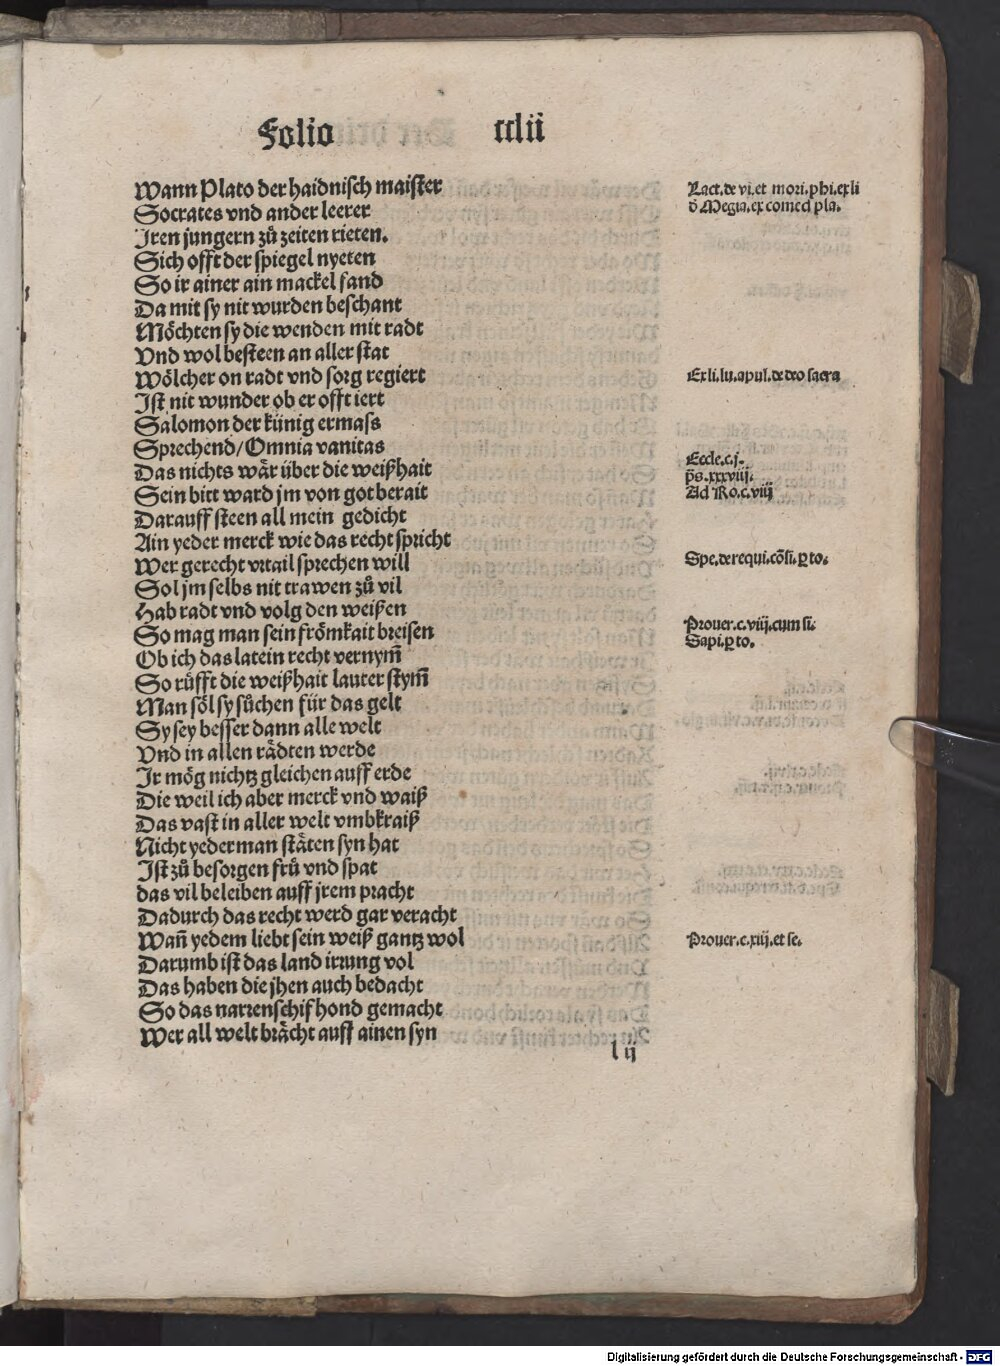 Folio cclii
Wann Plato der haidnisch maister
Socrates vnd ander leerer
Jren jungern zů zeiten rieten.
Sich offt der spiegel nyeten
So ir ainer ain mackel fand
Da mit sy nit wurden beschant
Möchten sy die wenden mit radt
Vnd wol besteen an aller stat
Wölcher on radt vnd sorg regiert
Jst nit wunder ob er offt iert
Salomon der künig ermass
Sprechend/Omnia vanitas
Das nichts wär über die weißhait
Sein bitt ward jm von got berait
Darauff steen all mein gedicht
Ain yeder merck wie das recht spricht
Wer gerecht vrtail sprechen will
Sol jm selbs nit trawen zů vil
Hab radt vnd volg den weißen
So mag man sein frömkait breisen
Ob ich das latein recht vernym̄
So rüfft die weißhait lauter stym̄
Man söl sy sůchen für das gelt
Sy sey besser dann alle welt
Vnd in allen rädten werde
Jr mög nichtz gleichen auff erde
Die weil ich aber merck vnd waiß
Das vast in aller welt vmbkraiß
Nicht yederman stäten syn hat
Jst zů besorgen frů vnd spat
das vil beleiben auff jrem pracht
Dadurch das recht werd gar veracht
Wañ yedem liebt sein weiß gantz wol
Darumb ist das land irrung vol
Das haben die jhen auch bedacht
So das narrenschif hond gemacht
Wer all welt brächt auff ainen syn
l ij
Lact.de vi.et mori.phi.ex li
ō Megia.ex comed pla.
Ex li.lu.apul.de deo sacra
Eccle.c.j.
p̄s.xxxviij.
Ad Ro.c.viij
Spe.de requi.cōsi.ꝑ to.
Prouer.c.viij.cum si.
Sapi.ꝑ to.
Prouer.c.xiij.et se.
Digitalisierung gefördert durch die Deutsche Forschungsgemeinschaft - DFG